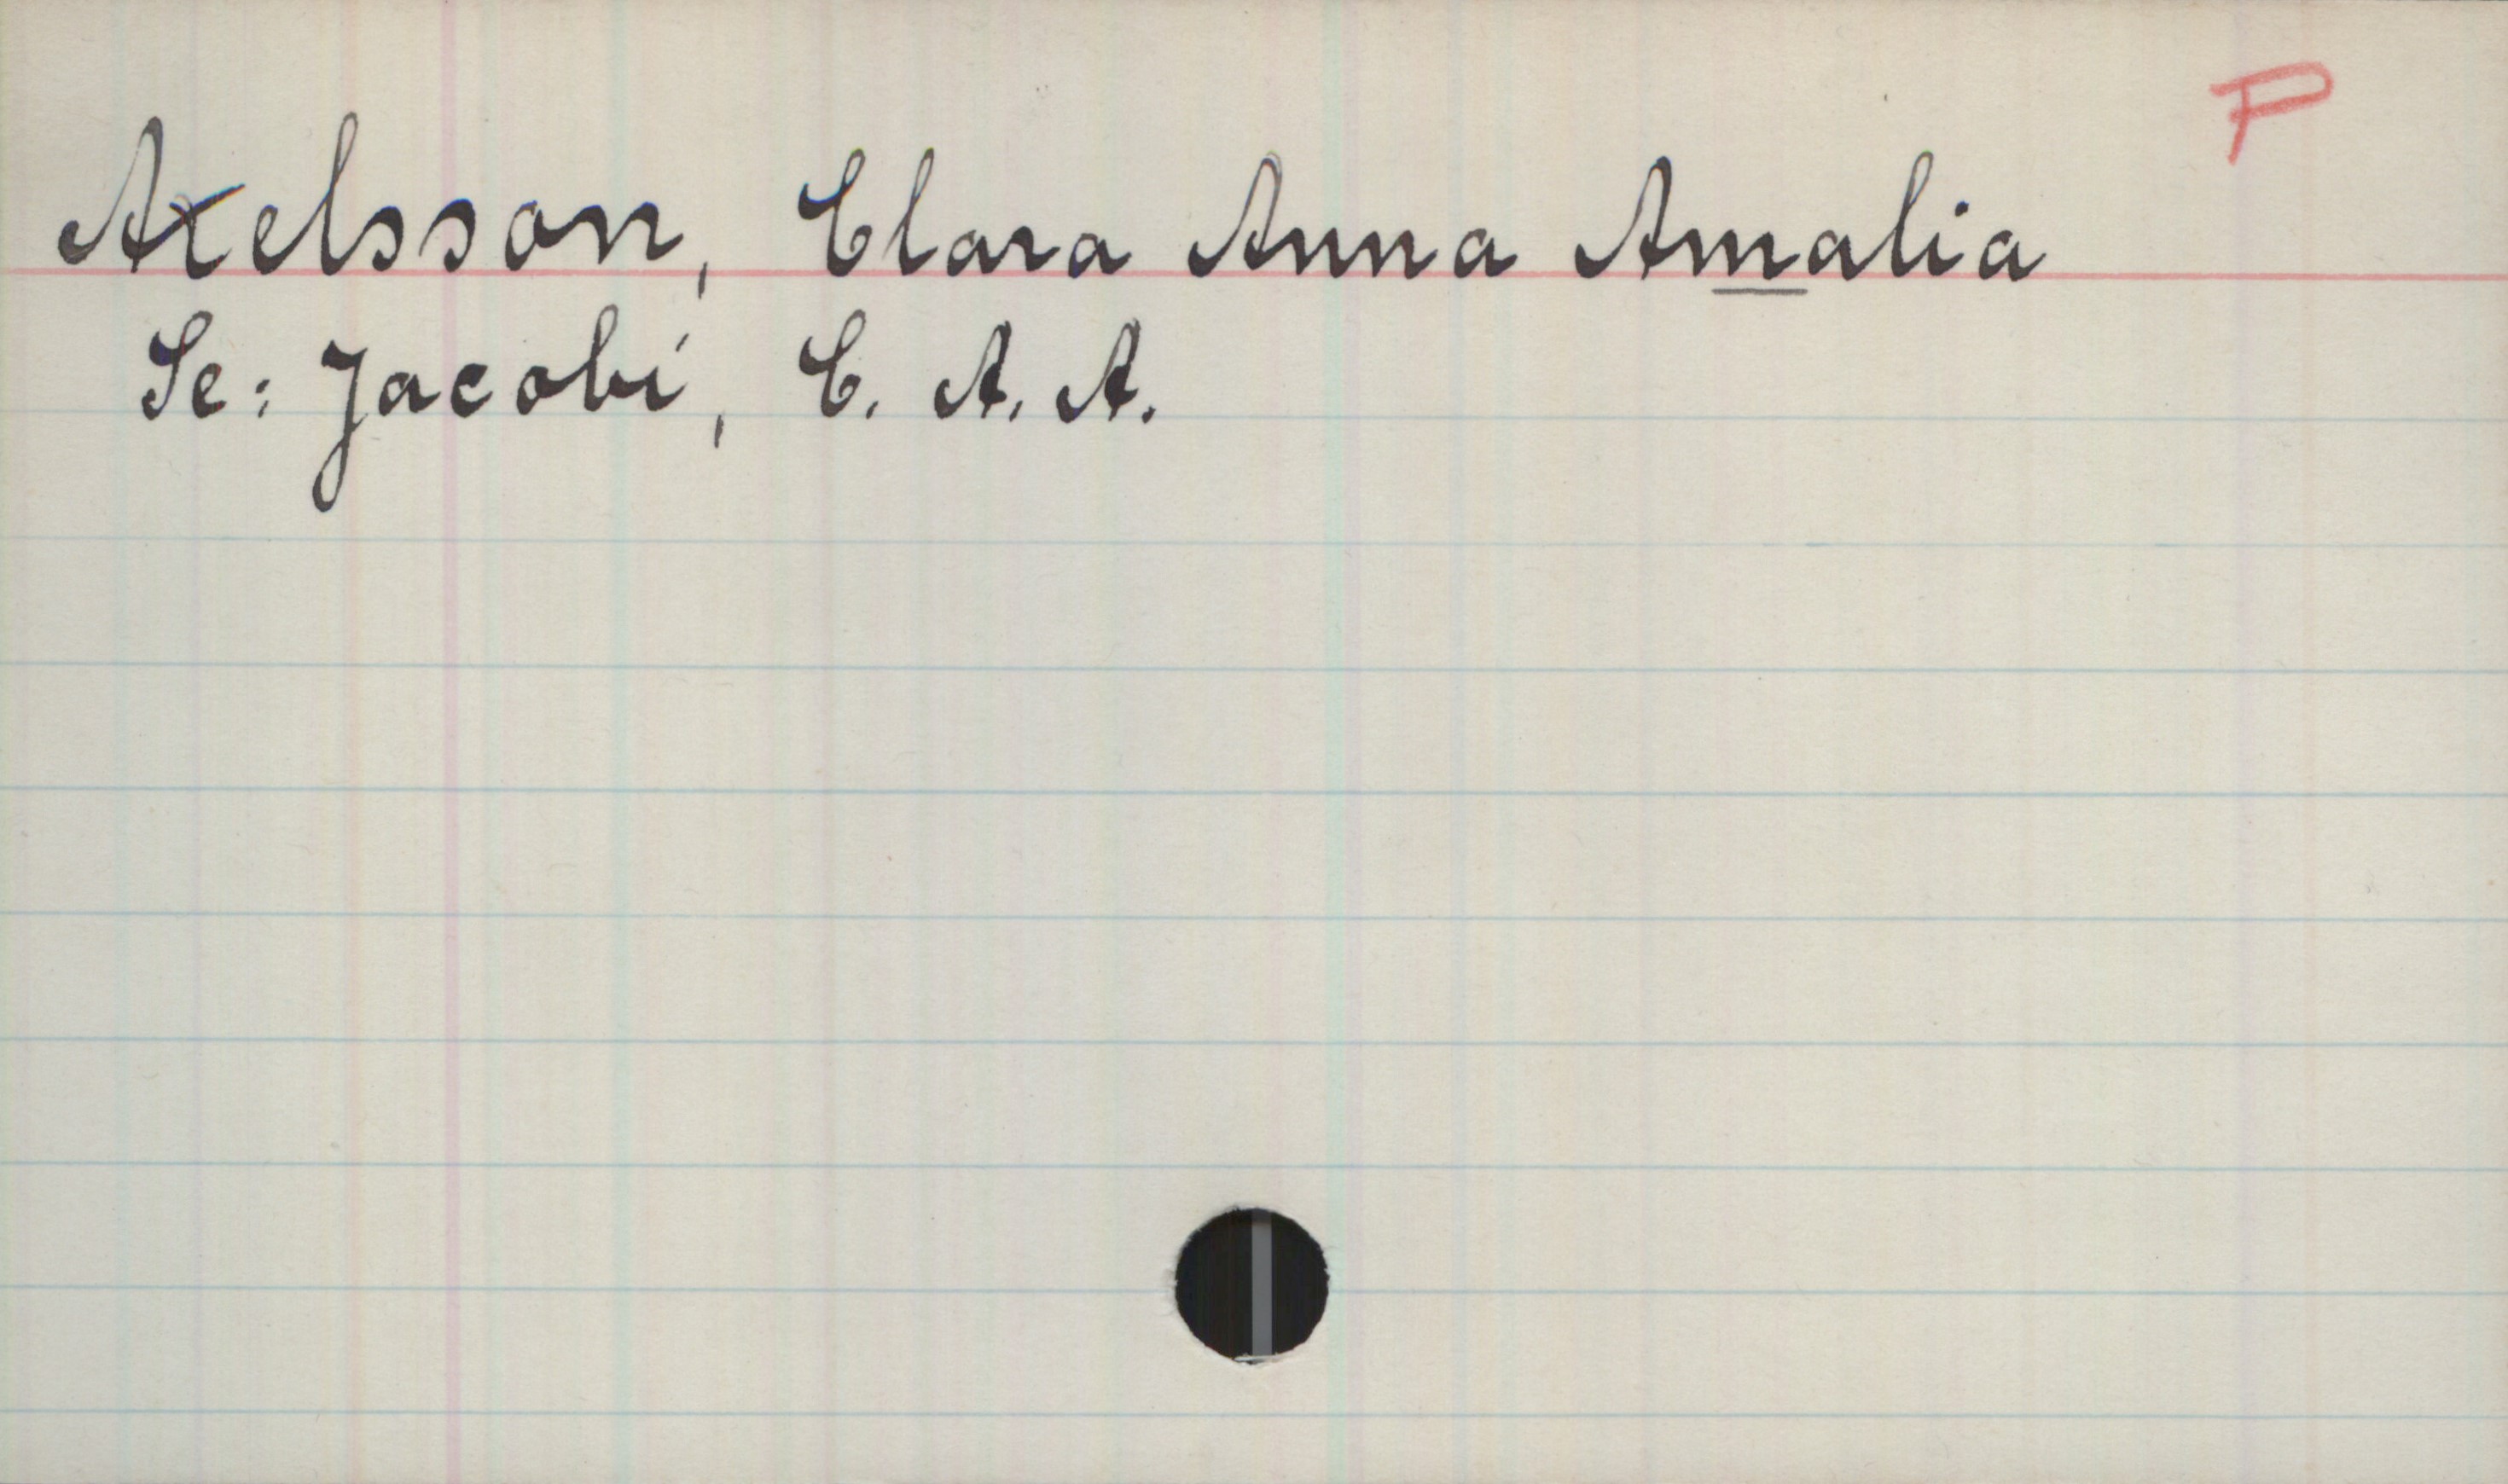 P
Axelsson, Clara Anna Amalia
Se: Jacobi, C. A. A.